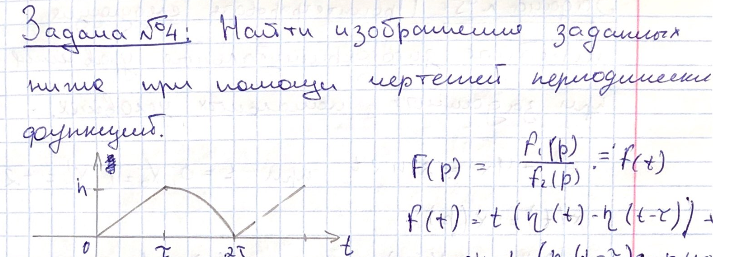 Задача №4: Найти изображения заданных
ниже при помощи чертежей периодически
функций.
h
0 τ 2τ t
F(p) = f₁(p)/f₂(p) ≓ f(t)
f(t) = t(η(t)-η(t-τ)) +